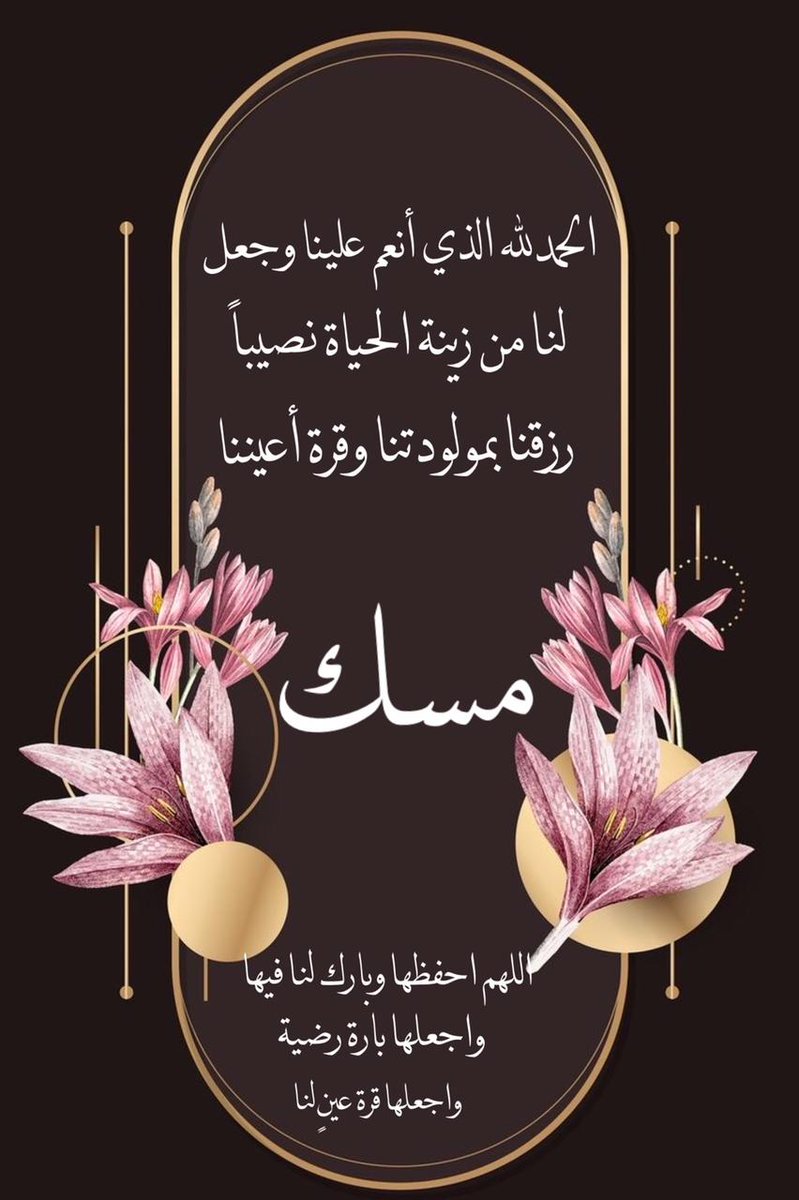 الحمد لله الذي أنعم علينا وجعل
لنا من زينة الحياة نصيباً
رزقنا بمولودتنا وقرة أعيننا
مسك
اللهم احفظها وبارك لنا فيها
واجعلها بارة رضية
واجعلها قرة عينٍ لنا